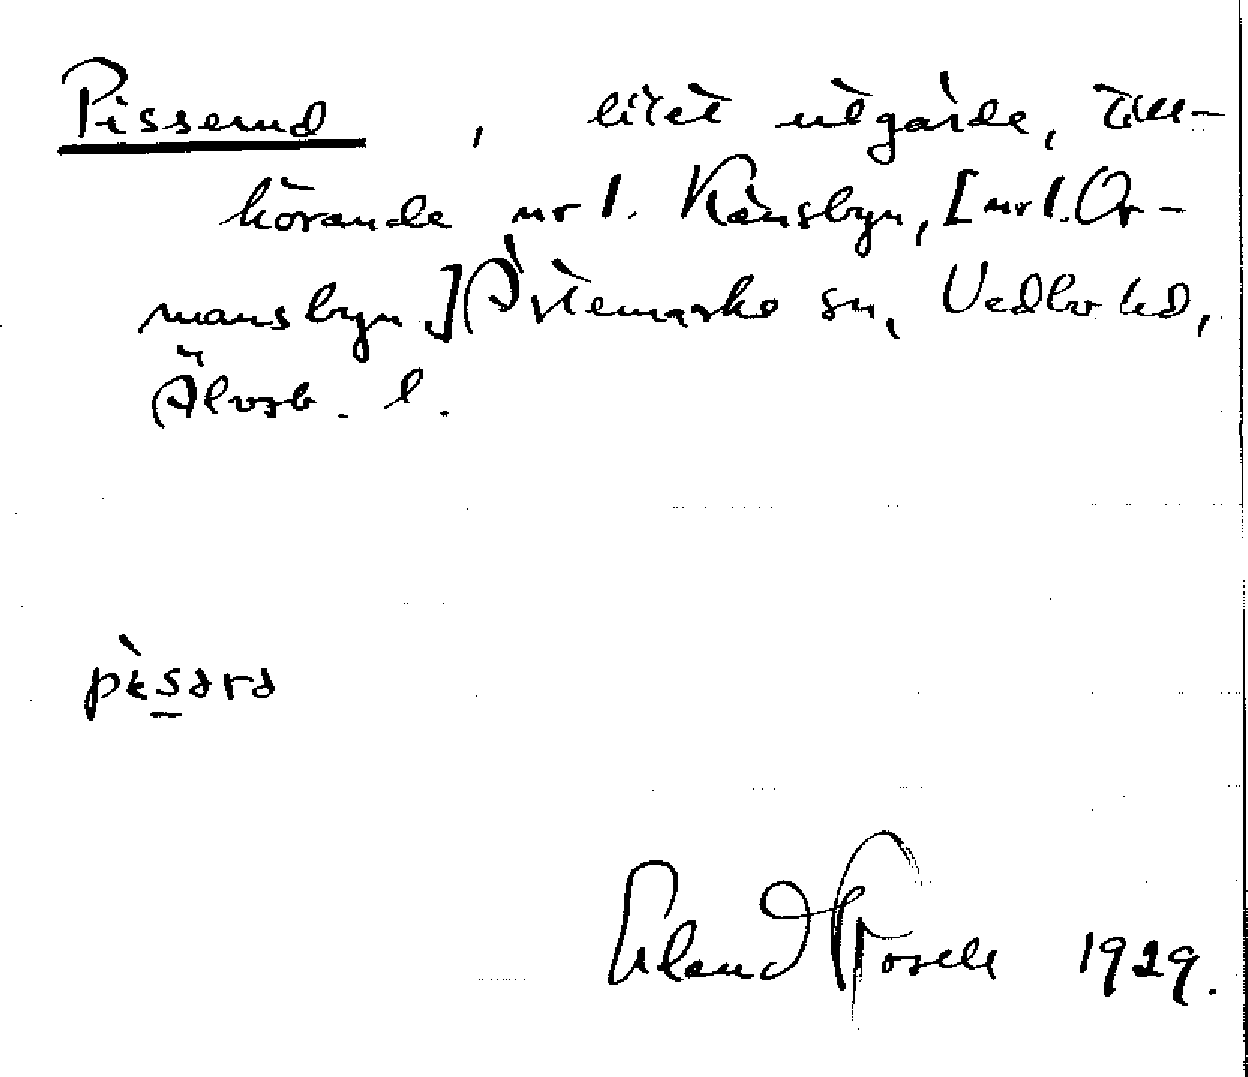 Pisserud, litet utgärde, till-
hörande nr 1. Kånsbyn, [nr 1. Or-
mansbyn] Årtemarks sn, Vedbo hd,
Älvsb. l.
pɩ̀sərə
Erland Rosell 1929.